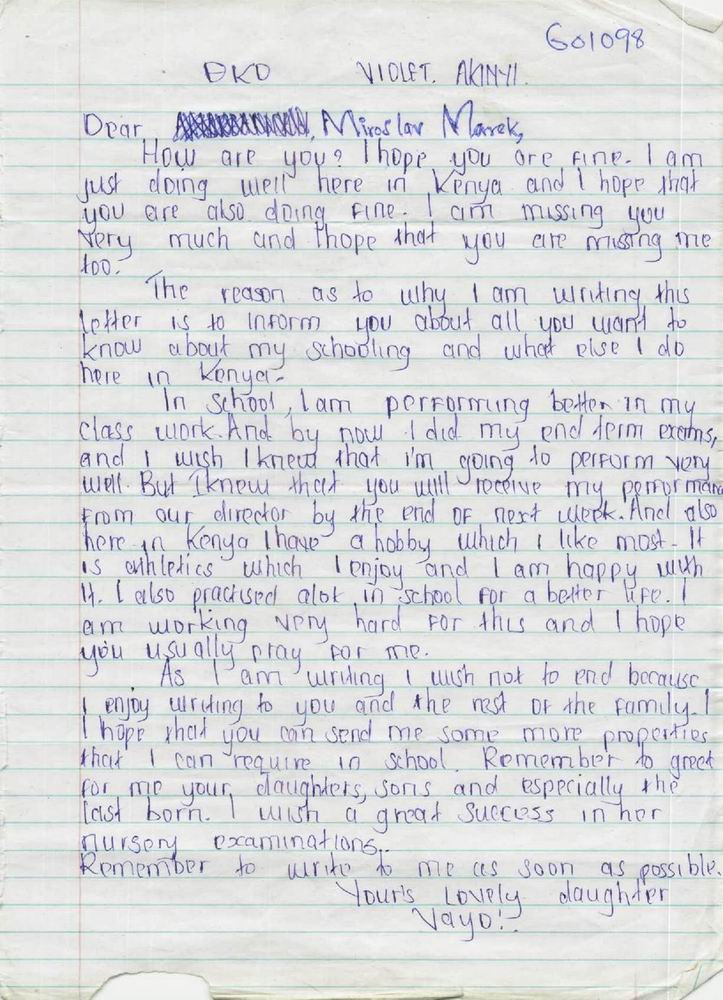 G01098
DKD VIOLET. AKINYI.
Dear Miroslav Marek,
How are you? I hope you are fine. I am
just doing well here in Kenya and I hope that
you are also doing fine. I am missing you
very much and I hope that you are missing me
too.
The reason as to why I am writing this
letter is to inform you about all you want to
know about my schooling and what else I do
here in Kenya.
In school, I am performing better in my
class work. And by now I did my end term exams,
and I wish I knew that i'm going to perform very
well. But I knew that you will receive my performan
from our director by the end of next week. And also
here in Kenya I have a hobby which I like most. It
is athletics which I enjoy and I am happy with
it. I also practised alot in school for a better life. I
am working very hard for this and I hope
you usually pray for me.
As I am writing I wish not to end because
I enjoy writing to you and the rest of the family. I
I hope that you can send me some more properties
that I can require in school. Remember to greet
for me your daughters, sons and especially the
last born. I wish a great success in her
nursery examinations.
Remember to write to me as soon as possible.
Your's Lovely daughter
Vayo!.